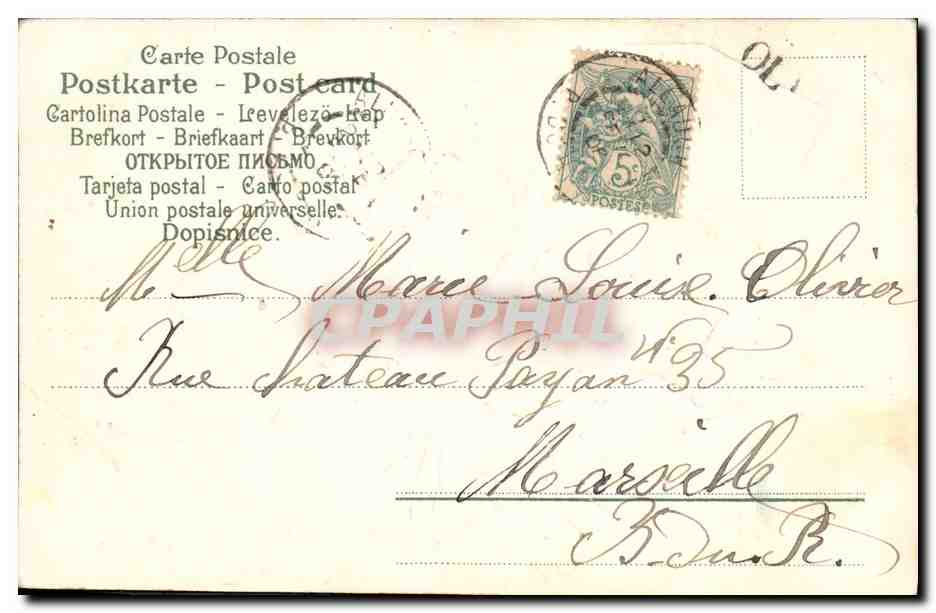 Carte Postale
Postkarte - Post card
Cartolina Postale - Levelező-Lap
Brefkort - Briefkaart - Brevkort
ОТКРЫТОЕ ПИСЬМО
Tarjeta postal - Carto postal
Union postale universelle.
Dopisnice.
5c
POSTES
OL
Melle Marie Louise Olivier
CPAPHIL
Rue Chateau Payan N° 35
Marseille
B. du. R.